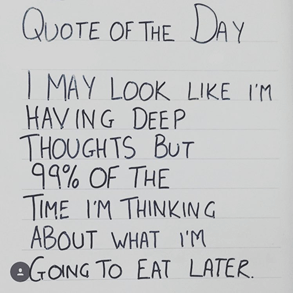 QUOTE OF THE DAY
I MAY LOOK LIKE I'M
HAVING DEEP
THOUGHTS BUT
99% OF THE
TIME I'M THINKING
ABOUT WHAT I'M
GOING TO EAT LATER.